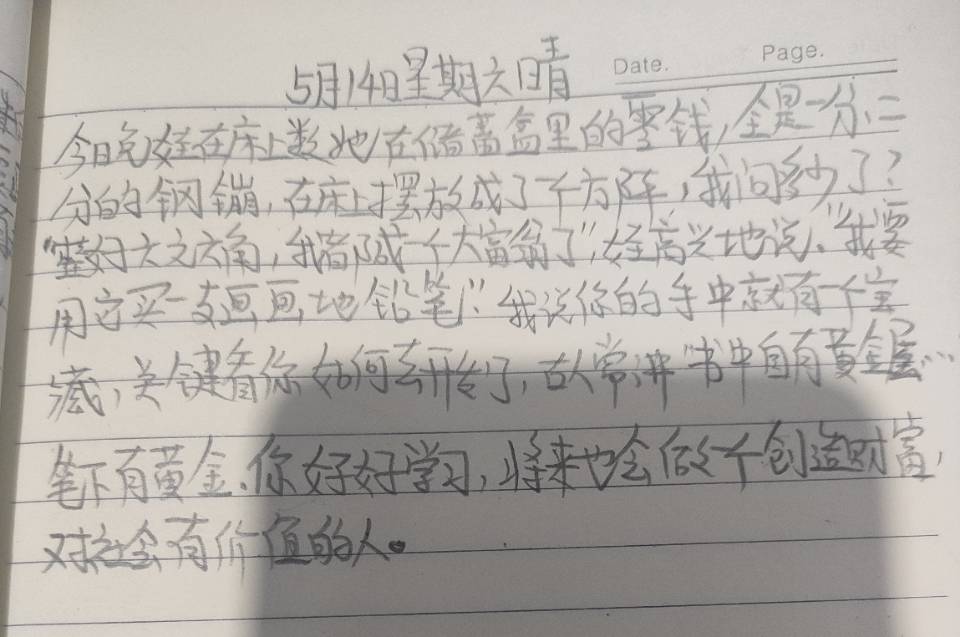 Date. Page.
5月14日星期六晴
今日晚女娃在床上数她在储蓄盒里的零钱,全是一分、二
分的钢镚,在床上摆放成了一个方阵,我问多少了?
"整好六元六角,我都成一个大富翁了",娃高兴地说,"我要
用它买一支画画地铅笔。"我说你的手中就有一个宝
藏,关键看你如何去开发了,古人常讲"书中自有黄金屋…
笔下有黄金、你好好学习,将来也会做个创造财富,
对社会有价值的人。